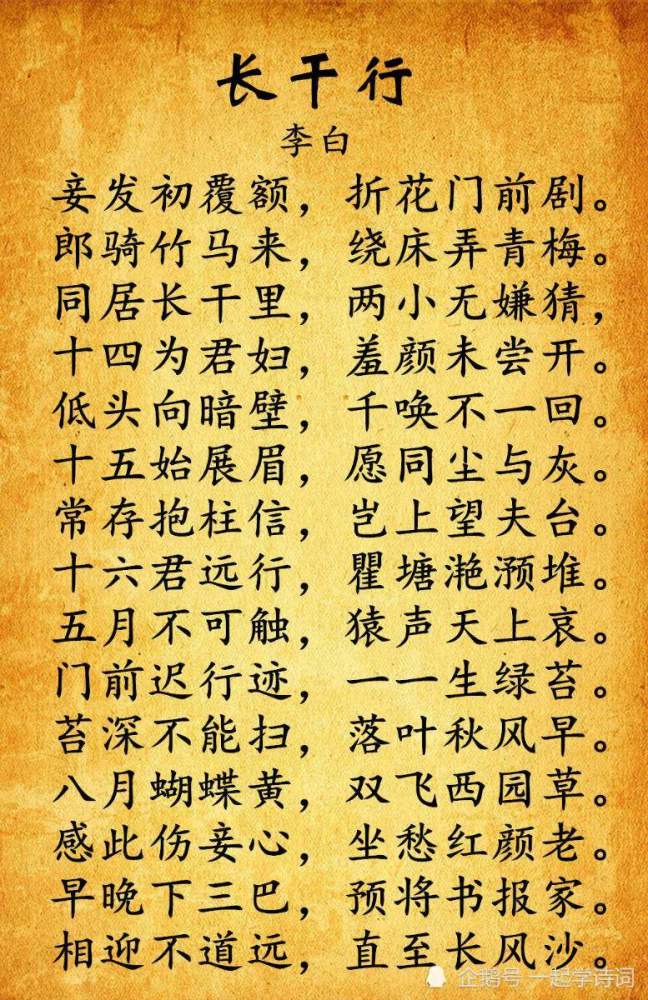 长干行
李白
妾发初覆额，折花门前剧。
郎骑竹马来，绕床弄青梅。
同居长干里，两小无嫌猜，
十四为君妇，羞颜未尝开。
低头向暗壁，千唤不一回。
十五始展眉，愿同尘与灰。
常存抱柱信，岂上望夫台。
十六君远行，瞿塘滟滪堆。
五月不可触，猿声天上哀。
门前迟行迹，一一生绿苔。
苔深不能扫，落叶秋风早。
八月蝴蝶黄，双飞西园草。
感此伤妾心，坐愁红颜老。
早晚下三巴，预将书报家。
相迎不道远，直至长风沙。
企鹅号 一起学诗词